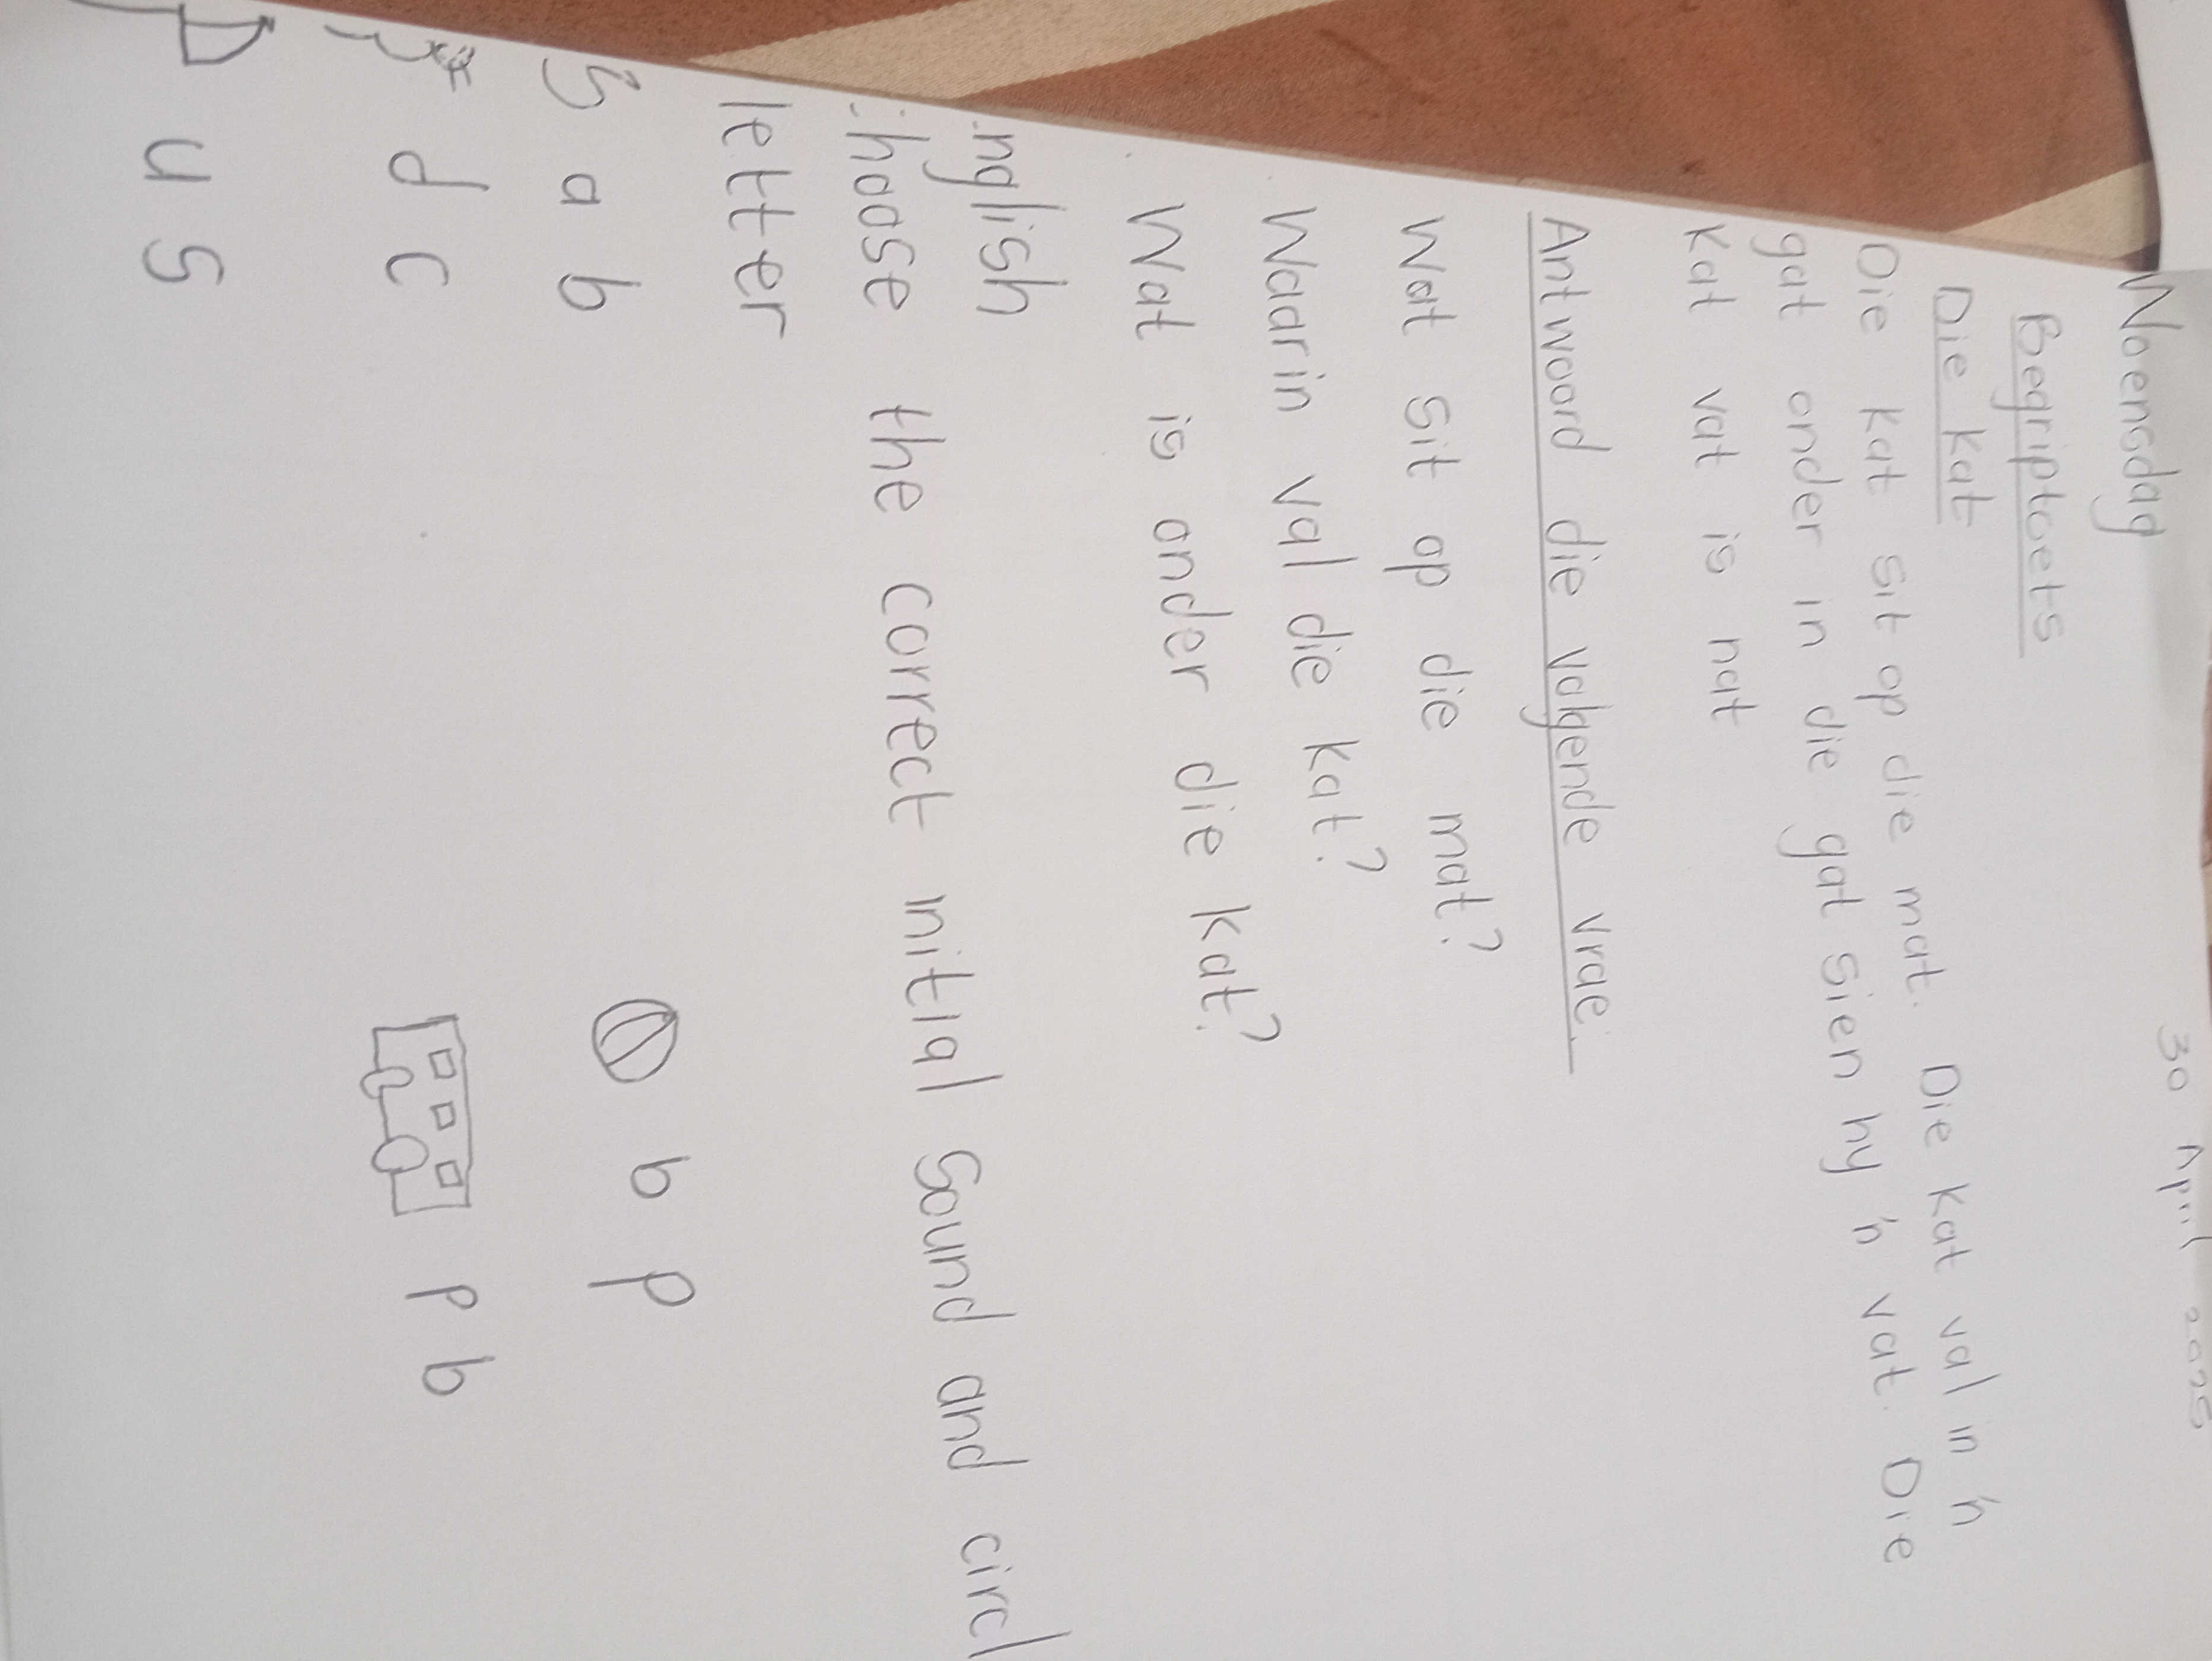 Woensdag 30 April
Begriptoets
Die kat
Die kat sit op die mat. Die kat val in 'n
gat onder in die gat sien hy 'n vat. Die
kat vat is nat
Antwoord die volgende vrae.
Wat sit op die mat?
Waarin val die kat?
Wat is onder die kat?
nglish
hoose the correct initial sound and circl
letter
a b
b p
d c
p b
u s